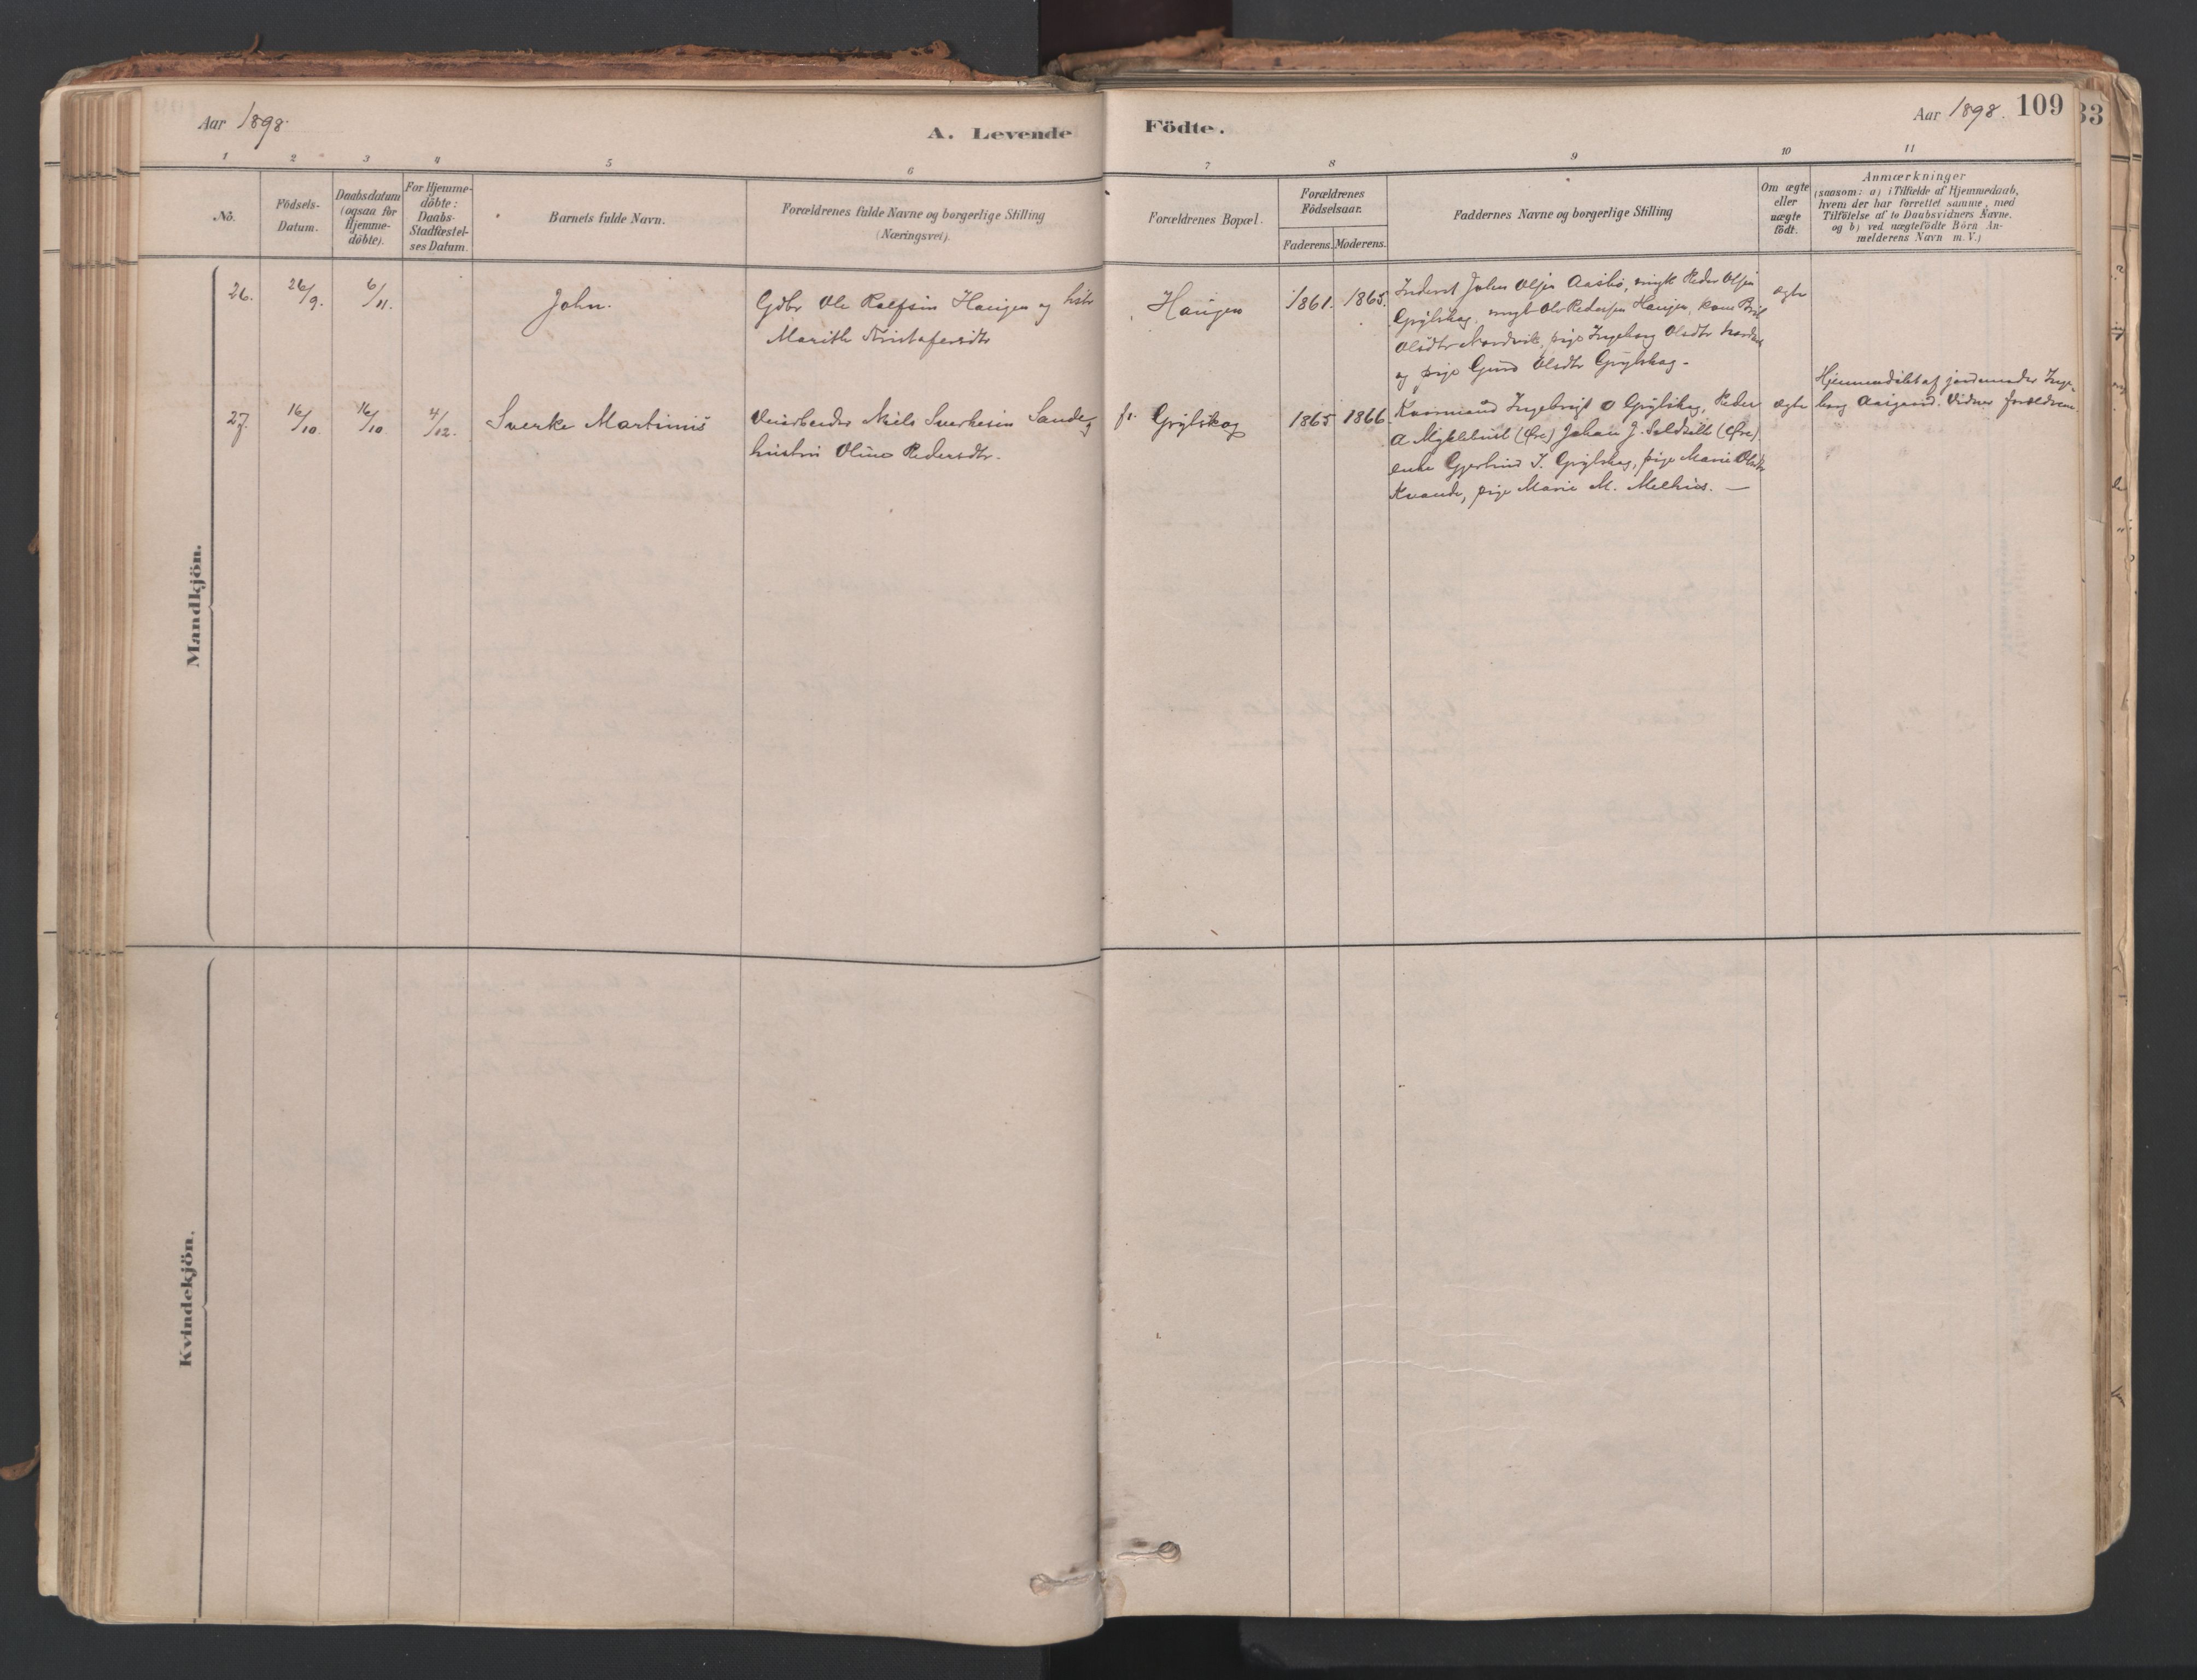 Aar 1898.
A. Levende Födte.
Aar 1898. 109
33
1 2 3 4 5 6 7 8 9 10 11
No.
Födsels-
Datum.
Daabsdatum
(ogsaa for
Hjemme-
döbte).
For Hjemme-
döbte:
Daabs-
Stadfæstel-
ses Datum.
Barnets fulde Navn.
Forældrenes fulde Navne og borgerlige Stilling
(Næringsvei).
Forældrenes Bopæl.
Forældrenes
Födselsaar.
Faderens. Moderens.
Faddernes Navne og borgerlige Stilling
Om ægte
eller
uægte
födt.
Anmærkninger
(saasom: a) i Tilfælde af Hjemmedaab,
hvem der har forrettet samme, med
Tilföielse af to Daabsvidners Navne,
og b) ved uægtefödte Börn An-
melderens Navn m. V.)
Mandkjön.
26. 26/9. 6/11. John.
Gdbr Ole Rolfsen Haugen og hstr
Marith Kristofersdtr
Haugen 1861. 1865.
Inderst John Olsen Aasbö, ungk Peder Olsen
, ungk Ole Pedersen Haugen, kone
Olsdtr Nordvik, pige Ingeborg Olsdtr
og pige Olsdtr
ægte
27. 16/10. 16/10. 4/12. Sverke Martinus
Veiarbeider Niels Sverkesen Sande og
hustru Oline Pedersdtr.
fr. 1865 1866.
Kaarmand Ingebrigt O , Peder
A Myklebust (Öre) Johan J. (Öre)
enke I. , pige Marie Olsdtr
Kvande, pige Marie M. Melhus. —
ægte
Hjemmedöbt af jordmoder Inge-
borg Aasgaard. Vidner forældrene.
Kvindekjön.